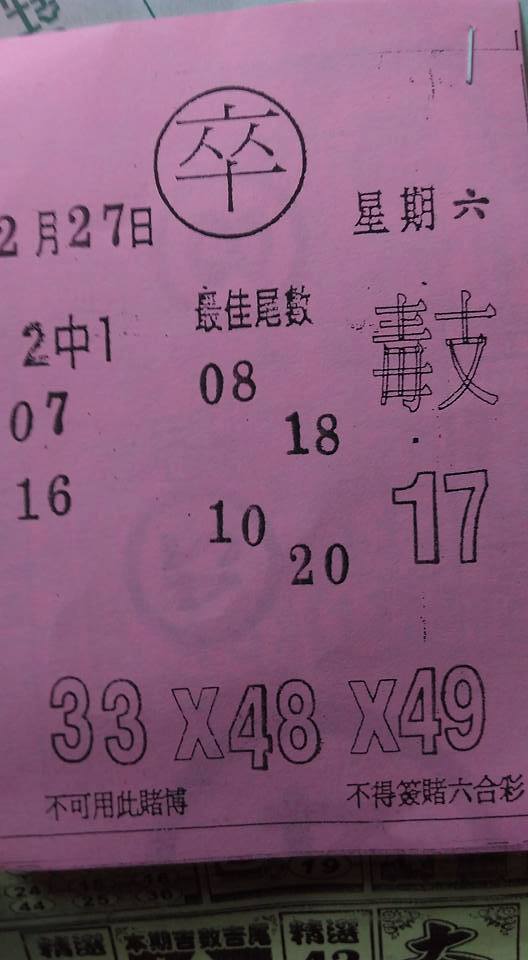 卒
2月27日
星期六
2中1
最佳尾數
毒支
07
08
18
16
10
20
17
33X48X49
不可用此賭博
不得簽賭六合彩
19
24
44 25 36
精選
本期吉數吉尾
精選